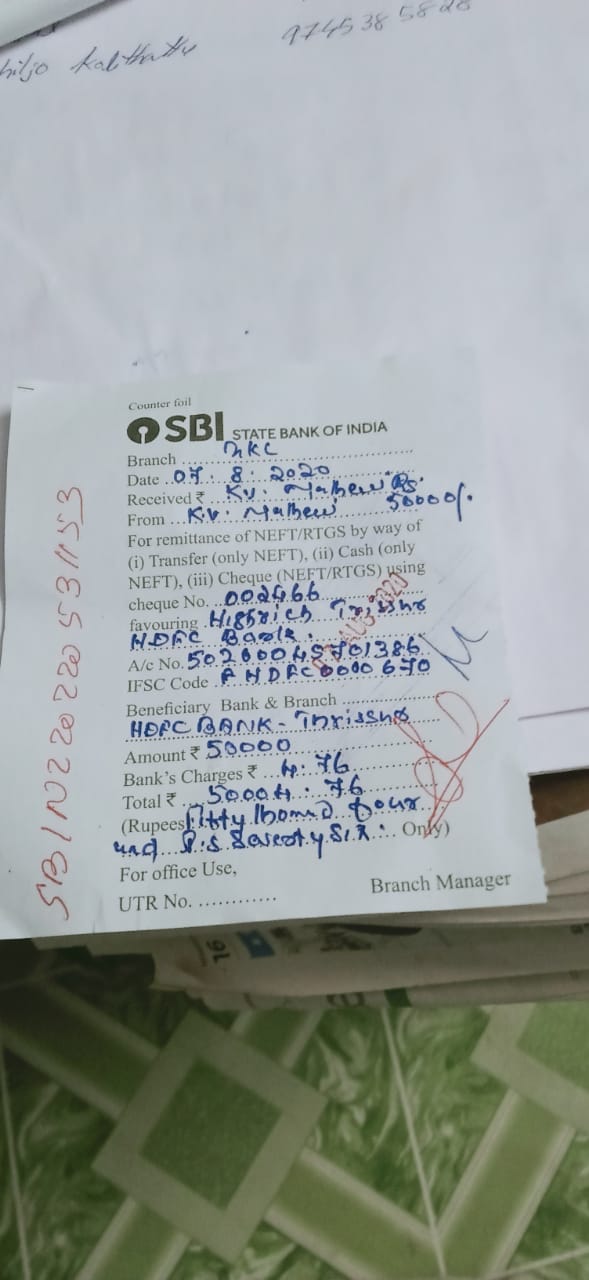 Kalithattu 9745385828
Counter foil
SBI STATE BANK OF INDIA
Branch NKC
Date 07. 8. 2020
Received ₹ K.V. Mathew Rs.
From K.V. Mathew 50000/.
For remittance of NEFT/RTGS by way of
(i) Transfer (only NEFT), (ii) Cash (only
NEFT), (iii) Cheque (NEFT/RTGS) using
cheque No. 002466
favouring Highrich Thrissur
HDFC Bank.
A/c No. 50200045701386
IFSC Code HDFC0000670
Beneficiary Bank & Branch
HDFC BANK - Thrissur
Amount ₹ 50000
Bank's Charges ₹ 4.76
Total ₹ 50004.76
(Rupees Fifty four
and P.S Seventy Six. Only)
For office Use,
UTR No. ............
Branch Manager
SBIN220220531153